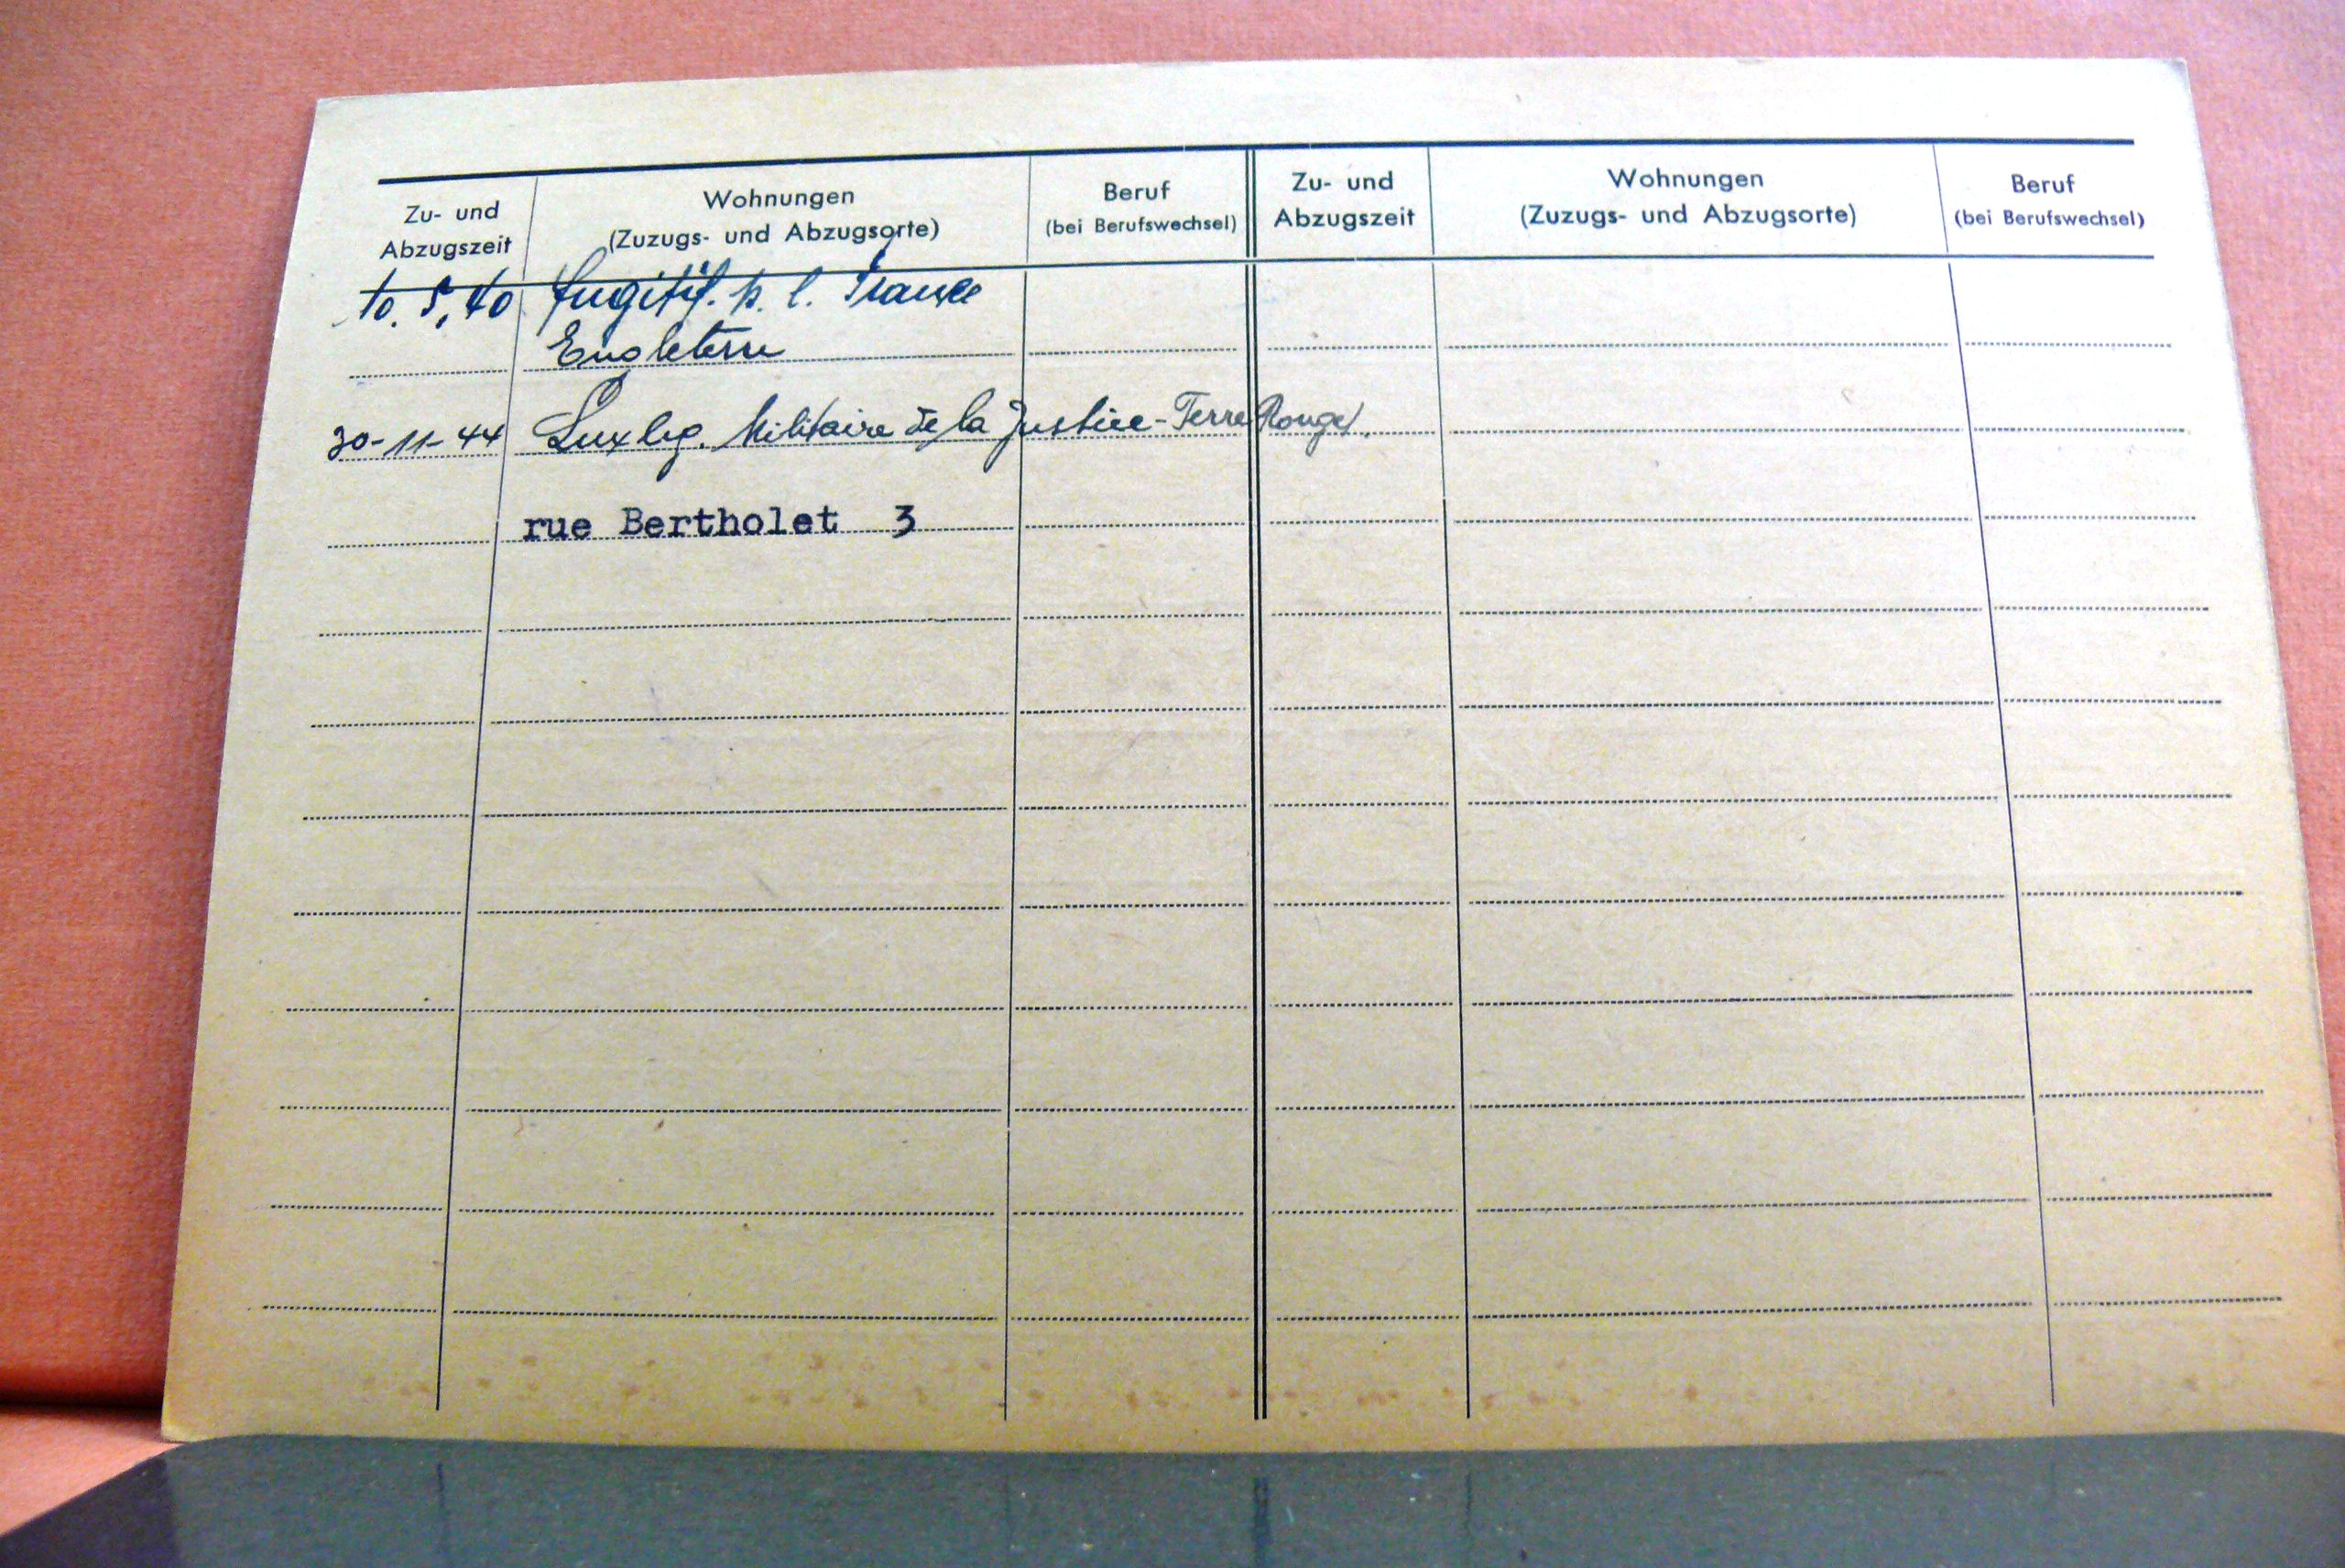 Zu- und Abzugszeit
Wohnungen (Zuzugs- und Abzugsorte)
Beruf (bei Berufswechsel)
Zu- und Abzugszeit
Wohnungen (Zuzugs- und Abzugsorte)
Beruf (bei Berufswechsel)
10. 5. 40 fugitif. p. l. France
Engleterre
30-11-44 Luxbg. Militaire de la Justice-Terre Rouge
rue Bertholet 3